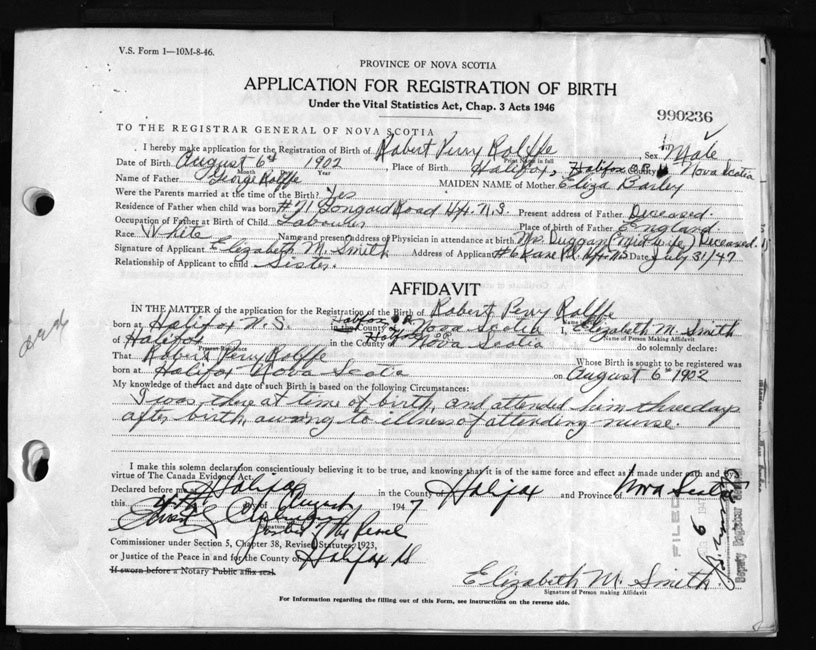 V.S. Form 1—10M-8-46.
PROVINCE OF NOVA SCOTIA
APPLICATION FOR REGISTRATION OF BIRTH
Under the Vital Statistics Act, Chap. 3 Acts 1946
990236
TO THE REGISTRAR GENERAL OF NOVA SCOTIA
I hereby make application for the Registration of Birth of Robert Perry Rolffe Sex Male
Print Name in full
Date of Birth August 6th 1902 Place of Birth Halifax, Halifax County Nova Scotia
Month Year
Name of Father George Rolffe MAIDEN NAME of Mother Eliza Barley
Were the Parents married at the time of the Birth? Yes
Residence of Father when child was born #71 Longard Road Hfx. N.S. Present address of Father Diseased.
Occupation of Father at Birth of Child Labourer Place of birth of Father England.
Race White Name and present address of Physician in attendance at birth Mrs. Duggan (Midwife) Diseased.
Signature of Applicant Elizabeth M. Smith Address of Applicant #6 Lane Hfx NS Date July 31/47
Relationship of Applicant to child Sister.
AFFIDAVIT
IN THE MATTER of the application for the Registration of the Birth of Robert Perry Rolffe
born at Halifax N.S. in the County of Nova Scotia I, Elizabeth M. Smith
Name of Person Making Affidavit
of Halifax in the County of Nova Scotia do solemnly declare:
Present Residence
That Robert Perry Rolffe Whose Birth is sought to be registered was
born at Halifax Nova Scotia on August 6th 1902
My knowledge of the fact and date of such Birth is based on the following Circumstances:
I was there at time of birth, and attended him three days
after birth, owing to illness of attending nurse.
I make this solemn declaration conscientiously believing it to be true, and knowing that it is of the same force and effect as if made under oath and by
virtue of The Canada Evidence Act.
Declared before me at Halifax in the County of Halifax and Province of Nova Scotia
this day of August 1947
Signature
Justice of the Peace
Commissioner under Section 5, Chapter 38, Revised Statutes, 1923,
or Justice of the Peace in and for the County of Halifax
If sworn before a Notary Public affix seal
Elizabeth M. Smith
Signature of Person making Affidavit
For Information regarding the filling out of this Form, see instructions on the reverse side.
FILED
6
Deputy Registrar General